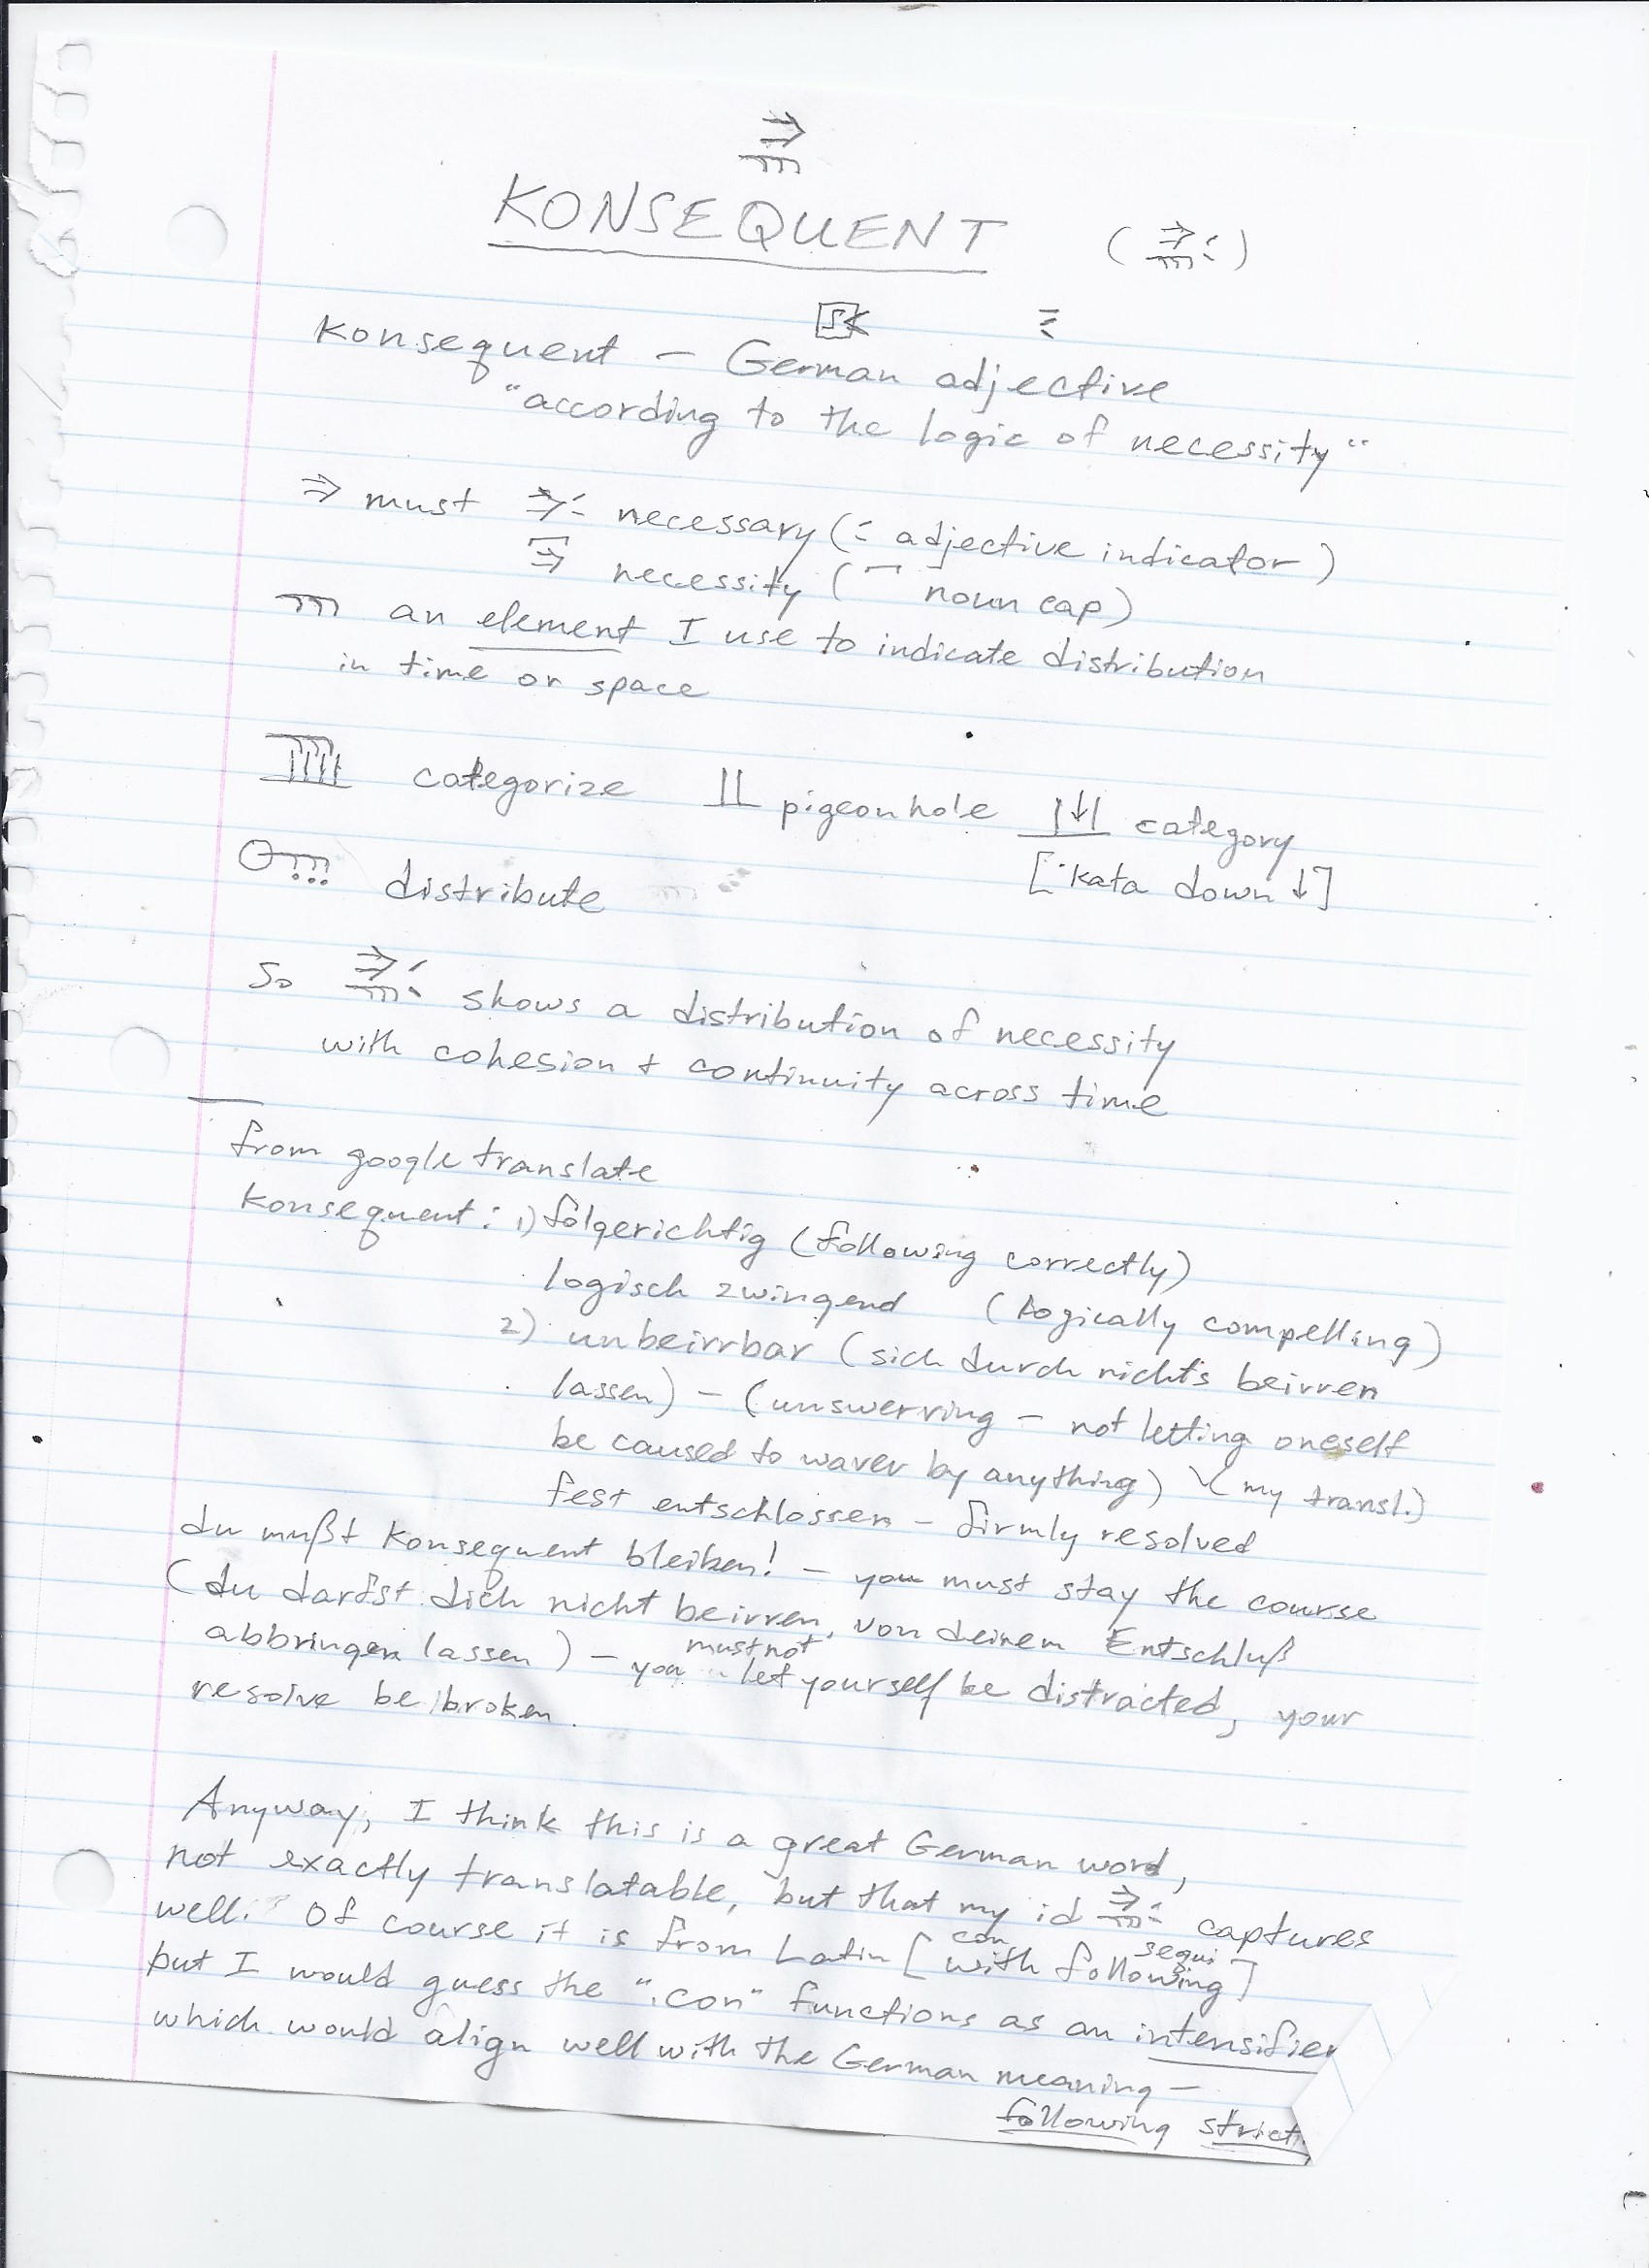 KONSEQUENT
Konsequent — German adjective
"according to the logic of necessity"
⇒ must necessary (: adjective indicator)
necessity (¯ noun cap)
an element I use to indicate distribution
in time or space
categorize pigeonhole category
distribute [·kata down ↓]
So shows a distribution of necessity
with cohesion + continuity across time
from google translate
Konsequent: 1) folgerichtig (following correctly)
logisch zwingend (logically compelling)
2) unbeirrbar (sich durch nichts beirren
lassen) – (unswerving – not letting oneself
be caused to waver by anything) (my transl.)
fest entschlossen – firmly resolved
du mußt Konsequent bleiben! – you must stay the course
(du darfst dich nicht beirren, von deinem Entschluß
abbringen lassen) – you must not let yourself be distracted, your
resolve be broken.
Anyway, I think this is a great German word,
not exactly translatable, but that my id captures
well. Of course it is from Latin [con with sequi following]
but I would guess the "con" functions as an intensifier
which would align well with the German meaning –
following